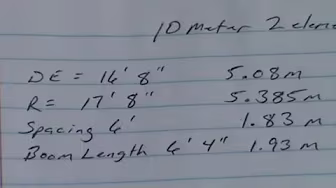 10 Meter 2 eleme
DE = 16' 8" 5.08m
R = 17' 8" 5.385m
Spacing 6' 1.83 m
Boom Length 6' 4" 1.93 m